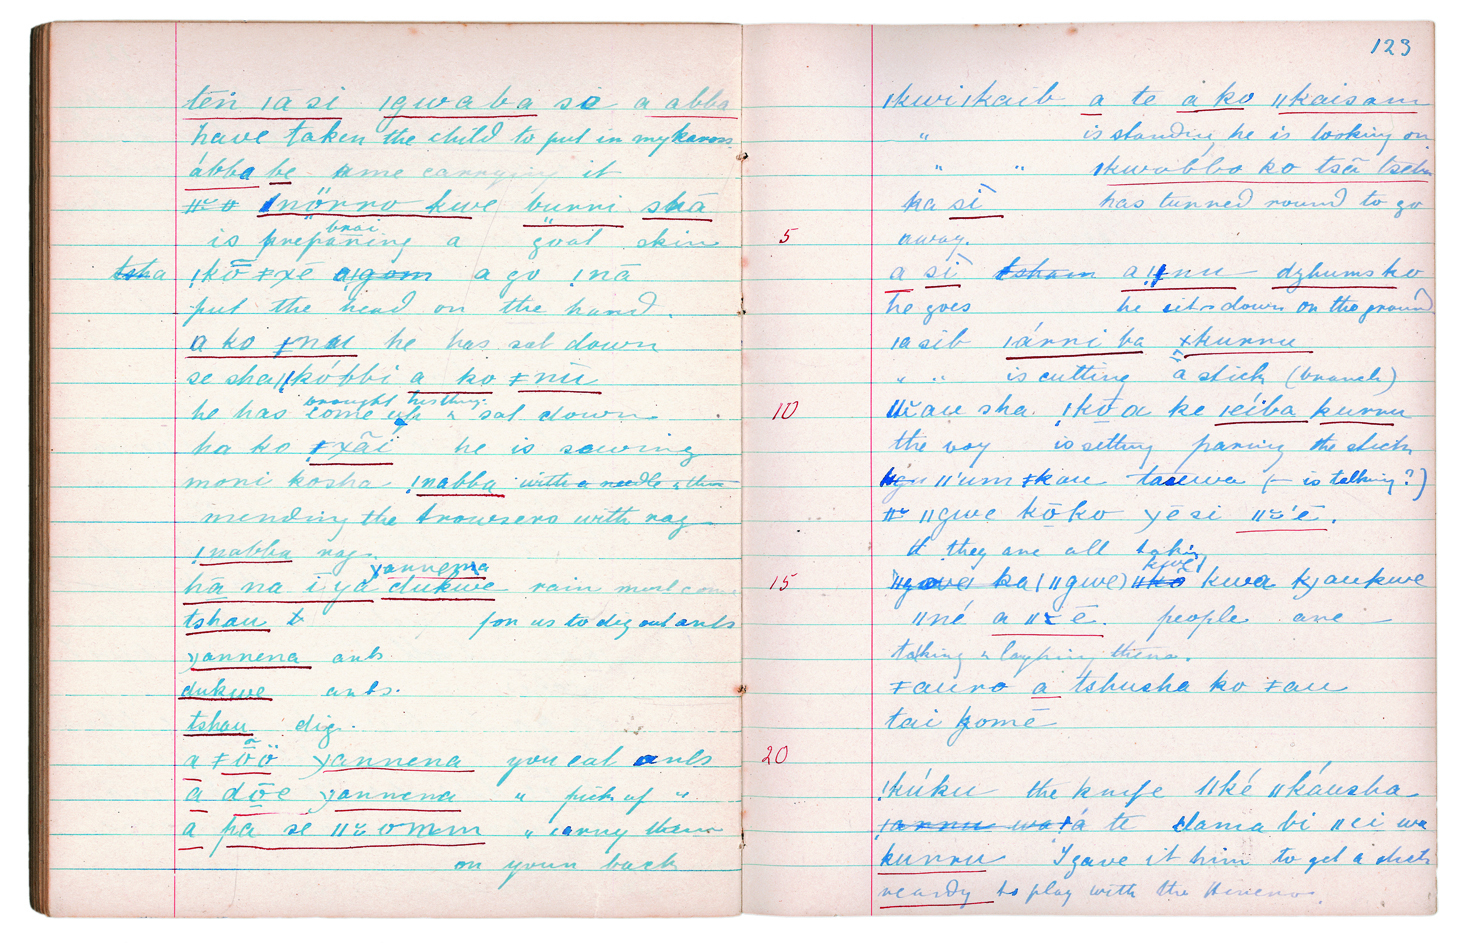 tēn ǀa si ǀgwaba se a abba
have taken the child to put in my kaross
ábba be me carrying it
ǀnörro kwe burri skā
brai
is preparing a goat skin
tsha ǃkō ǂxē agom a go ǃnā
put the head on the hand.
a ko ǂnau he has sat down
se sha ǁkóbbi a ko ǂnū
brought his thing
he has come up & sat down
ha ko ǂxãi he is sewing
moni kosha ǃnabba with a needle & thr
mending the trousers with rag
ǃnabba rag.
yannena
hā na i ya dukwe rain must come
tshau t for us to dig out ants
yannena ants
dukwe ants.
tshau dig.
a ǂõö yannena you eat ants
a dōe yannena " pick up "
a pa se ǁomm " carry them
on your back
123
ǀkwiǀkaib a te a ko ǁkaisam
" is standing he is looking on
" " ǀkwabba ko tsā tseb
ka si has turned round to go
5 away.
a si tsham aǃnu dzhumsko
he goes he sits down on the ground
ǀa sib ǀárni ba ǂkurru
" " is cutting a stick (branch)
10 ǁau sha. ǃkō a ke ǀéiba kurru
the boy is setting paring the stick
ǁ'um ǂkau taeuwa (– is talking?)
ǁgwe kōko yēsi ǁ'ē.
It they are all taking
kwe
15 ka (ǁgwe) ǁkō kwa kyaukwe
ǁné a ǁē. people are
taking & laying them.
ǂauro a tshusha ko ǂau
tai gomē
20
ǃkúku the knife ǁké ǁkáusha
ǀarnu wará te dama bi ǁei wa
kurru I gave it him to get a stick
ready to play with the